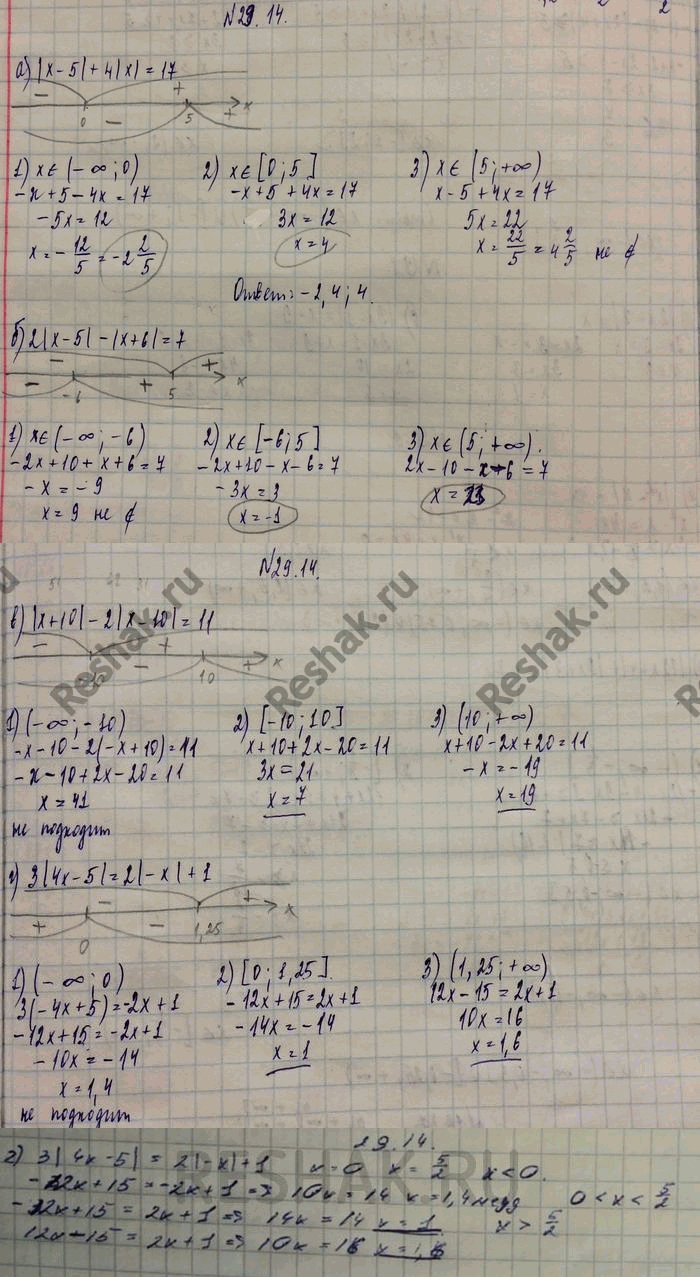 N29.14.
а) |x-5|+4|x|=17
- + x
0 - 5 +
1) x∈(-∞;0) 2) x∈[0;5] 3) x∈(5;+∞)
-x+5-4x=17 -x+5+4x=17 x-5+4x=17
-5x=12 3x=12 5x=22
x=-12/5=-2 2/5 x=4 x=22/5=4 2/5 не ∉
Ответ: -2,4; 4.
б) 2|x-5|-|x+6|=7
- +
- -6 + 5 x
1) x∈(-∞;-6) 2) x∈[-6;5] 3) x∈(5;+∞).
-2x+10+x+6=7 -2x+10-x-6=7 2x-10-x-6=7
-x=-9 -3x=3 x=23
x=9 не ∉ x=-1
N29.14.
в) |x+10|-2|x-10|=11
- + x
-10 - 10 +
1) (-∞;-10) 2) [-10;10] 3) (10;+∞)
-x-10-2(-x+10)=11 x+10+2x-20=11 x+10-2x+20=11
-x-10+2x-20=11 3x=21 -x=-19
x=41 x=7 x=19
не подходит
г) 3|4x-5|=2|-x|+1
- + x
+ 0 - 1,25
1) (-∞;0) 2) [0;1,25]. 3) (1,25;+∞)
3(-4x+5)=-2x+1 -12x+15=2x+1 12x-15=2x+1
-12x+15=-2x+1 -14x=-14 10x=16
-10x=-14 x=1 x=1,6
x=1,4
не подходит
29.14.
г) 3|4x-5|=2|-x|+1 x=0 x=5/2 x<0.
-12x+15=-2x+1 => 10x=14 x=1,4 0<x<5/2
-12x+15=2x+1 => 14x=14 x=1 x>5/2
12x-15=2x+1 => 10x=16 x=1,6
Reshak.ru
Reshak.ru
Reshak.ru
RESHAK.RU